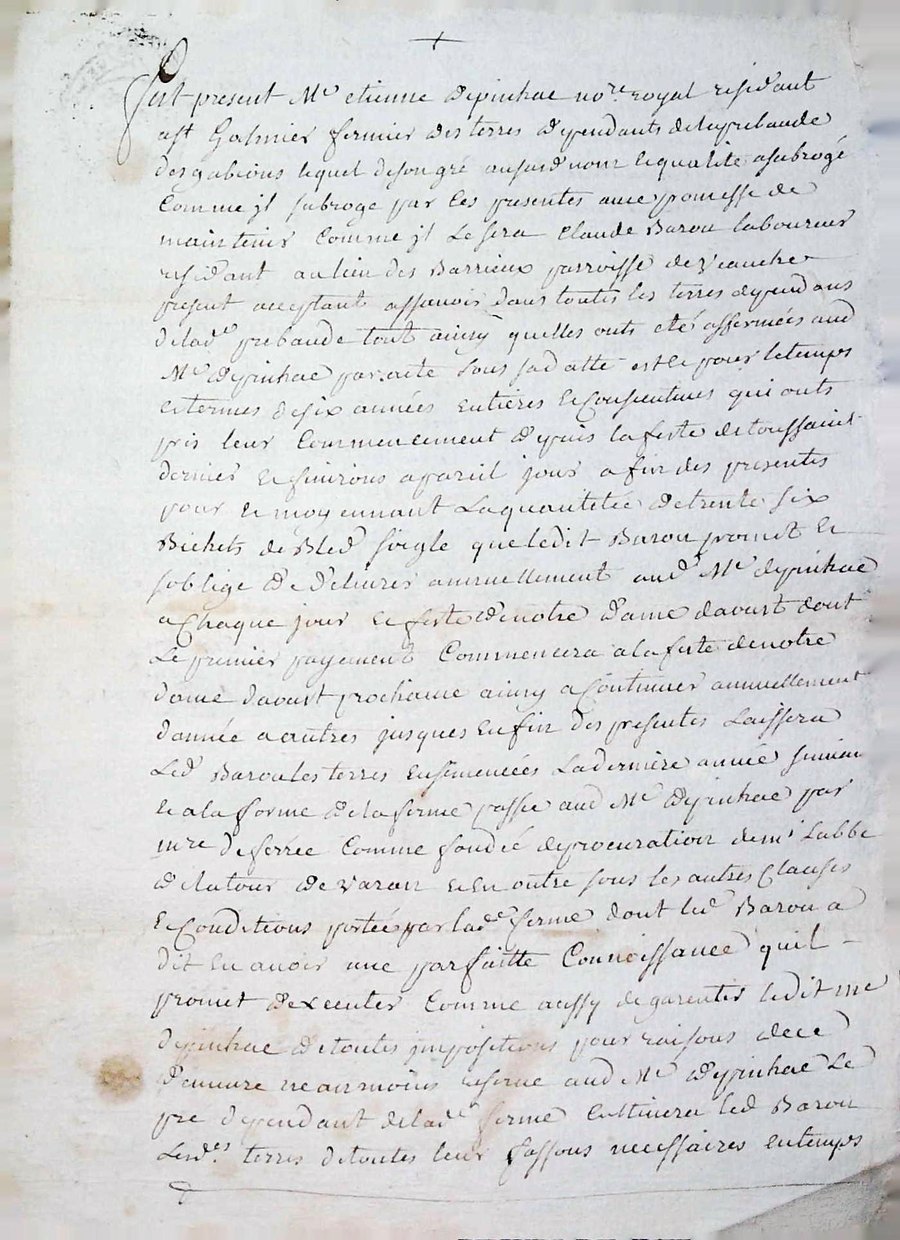 fut present Me etienne depinhac nore royal residant
a st Galmier fermier des terres dependants de la prebande
des gabions lequel de son gré a subrogé
Comme jl subroge par les presentes avec promesse de
maintenir Comme jl le fera Claude Barou laboureur
residant au lieu des Barrieux parroisse de Veauche
present acceptant assavoir dans toutes les terres dependans
de lade prebande tout ainsy quelles onts eté affermées aud
Me depinhac par acte sous sa datte et ce pour le temps
et termes de six années entieres et Consecutives qui onts
pris leur Commencement depuis la feste de toussaint
dernier et finirons a pareil jour a fin des presentes
pour et moyennant la quantitée de trente six
Bichets de Bled seigle que ledit Barou promet et
soblige de delivrer annuellement aud Me depinhac
a Chaque jour et feste de notre dame davout dont
Le premier payement Commencera a la feste de notre
dame davout prochaine ainsy a Continuer annuellement
dannée a autres jusques en fin des presentes Laissera
Led Barou les terres ensemencées La derniere année suivant
et a la forme de la ferme passée aud Me depinhac par
mre deferrée Comme fondé de procuration de mr Labbé
de latour de varan et en outre sous les autres Clauses
et Conditions portée par lade ferme dont led Barou a
dit en avoir une parfaitte Connoissance quil
promet dexecuter Comme aussy de garentir ledit me
depinhac de toutes jmpositions pour raisons de ce
demeure neanmoins reservé aud Me depinhac Le
pre dependant de lade ferme Cultivera led Barou
Lesdes terres de toutes leur fassons necessaires en temps